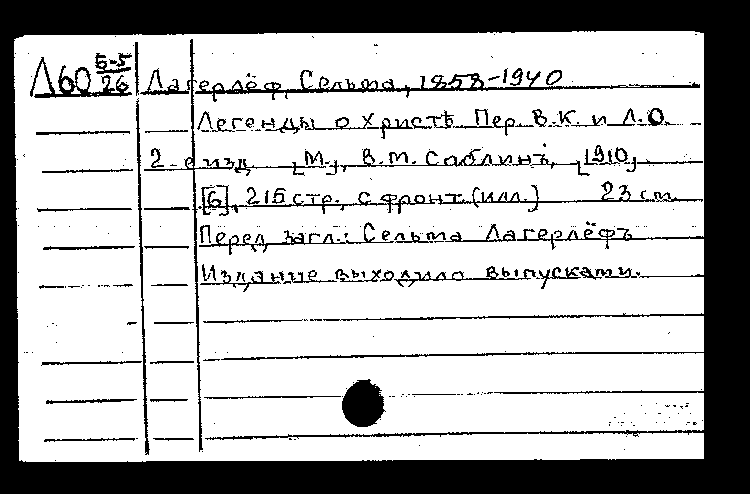 Л60 Б-5/26 Лагерлёф, Сельма, 1858-1940
Легенды о Христѣ. Пер. В.К. и Л.О.
2-е изд. [М.], В.М. Саблинъ, [1910].
[6], 215 стр., с фронт. (илл.) 23 см.
Перед загл.: Сельма Лагерлёфъ
Издание выходило выпусками.